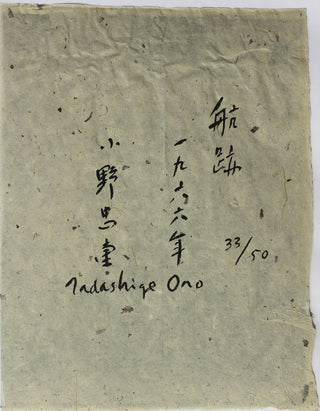 航跡
一九六六年
33/50
小野忠重
Tadashige Ono